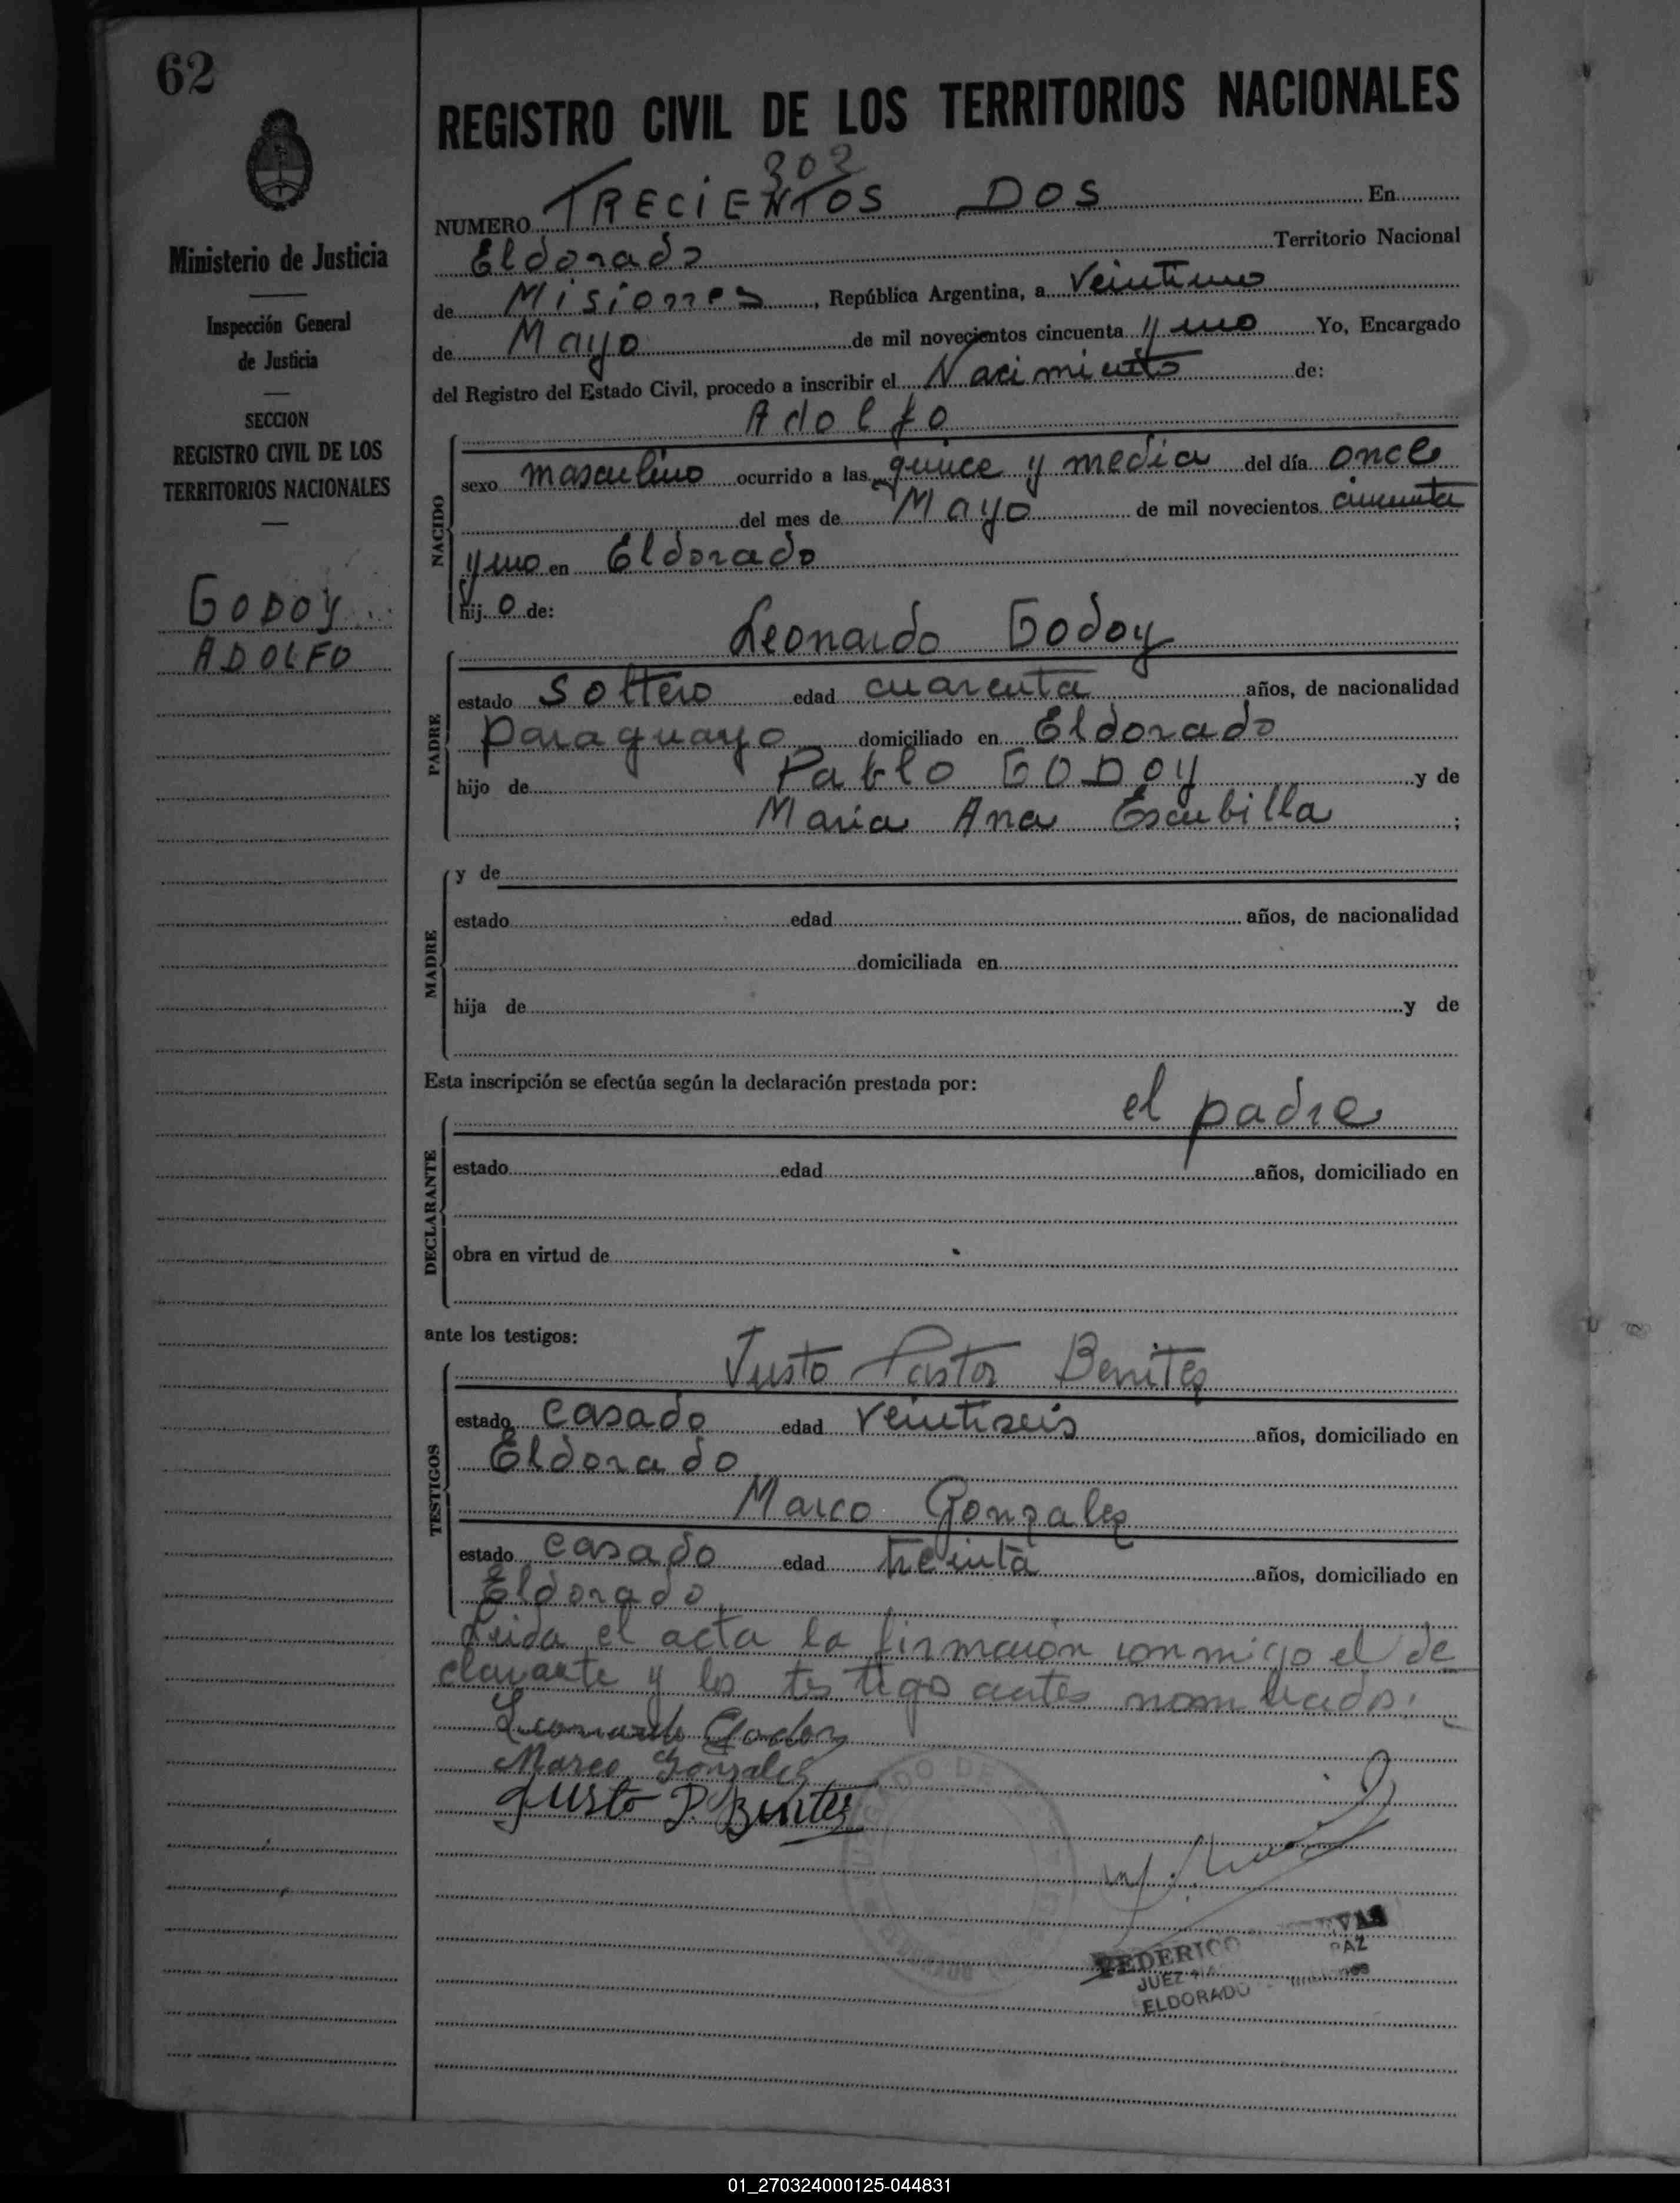 62
REGISTRO CIVIL DE LOS TERRITORIOS NACIONALES
302
NUMERO TRECIENTOS DOS En
Eldorado Territorio Nacional
de Misiones, República Argentina, a veintiuno
de Mayo de mil novecientos cincuenta y uno Yo, Encargado
del Registro del Estado Civil, procedo a inscribir el Nacimiento de:
Adolfo
Ministerio de Justicia
Inspección General
de Justicia
SECCION
REGISTRO CIVIL DE LOS
TERRITORIOS NACIONALES
GODOY
ADOLFO
NACIDO
sexo masculino ocurrido a las quince y media del día once
del mes de Mayo de mil novecientos cincuenta
y uno en Eldorado
hij o de:
Leonardo Godoy
PADRE
estado soltero edad cuarenta años, de nacionalidad
paraguayo domiciliado en Eldorado
hijo de Pablo GODOY y de
Maria Ana Escubilla ;
MADRE
y de
estado edad años, de nacionalidad
domiciliada en
hija de y de
Esta inscripción se efectúa según la declaración prestada por:
el padre
DECLARANTE
estado edad años, domiciliado en
obra en virtud de
ante los testigos:
Justo Pastor Benitez
TESTIGOS
estado casado edad veintiseis años, domiciliado en
Eldorado
Marco Gonzalez
estado casado edad treinta años, domiciliado en
Eldorado
Leida el acta la firmaron conmigo el de
clarante y los testigo antes nombrados.
Leonardo Godoy
Marco Gonzales
Justo P. Benitez
FEDERICO VAS
JUEZ PAZ
ELDORADO - Misiones
01_270324000125-044831